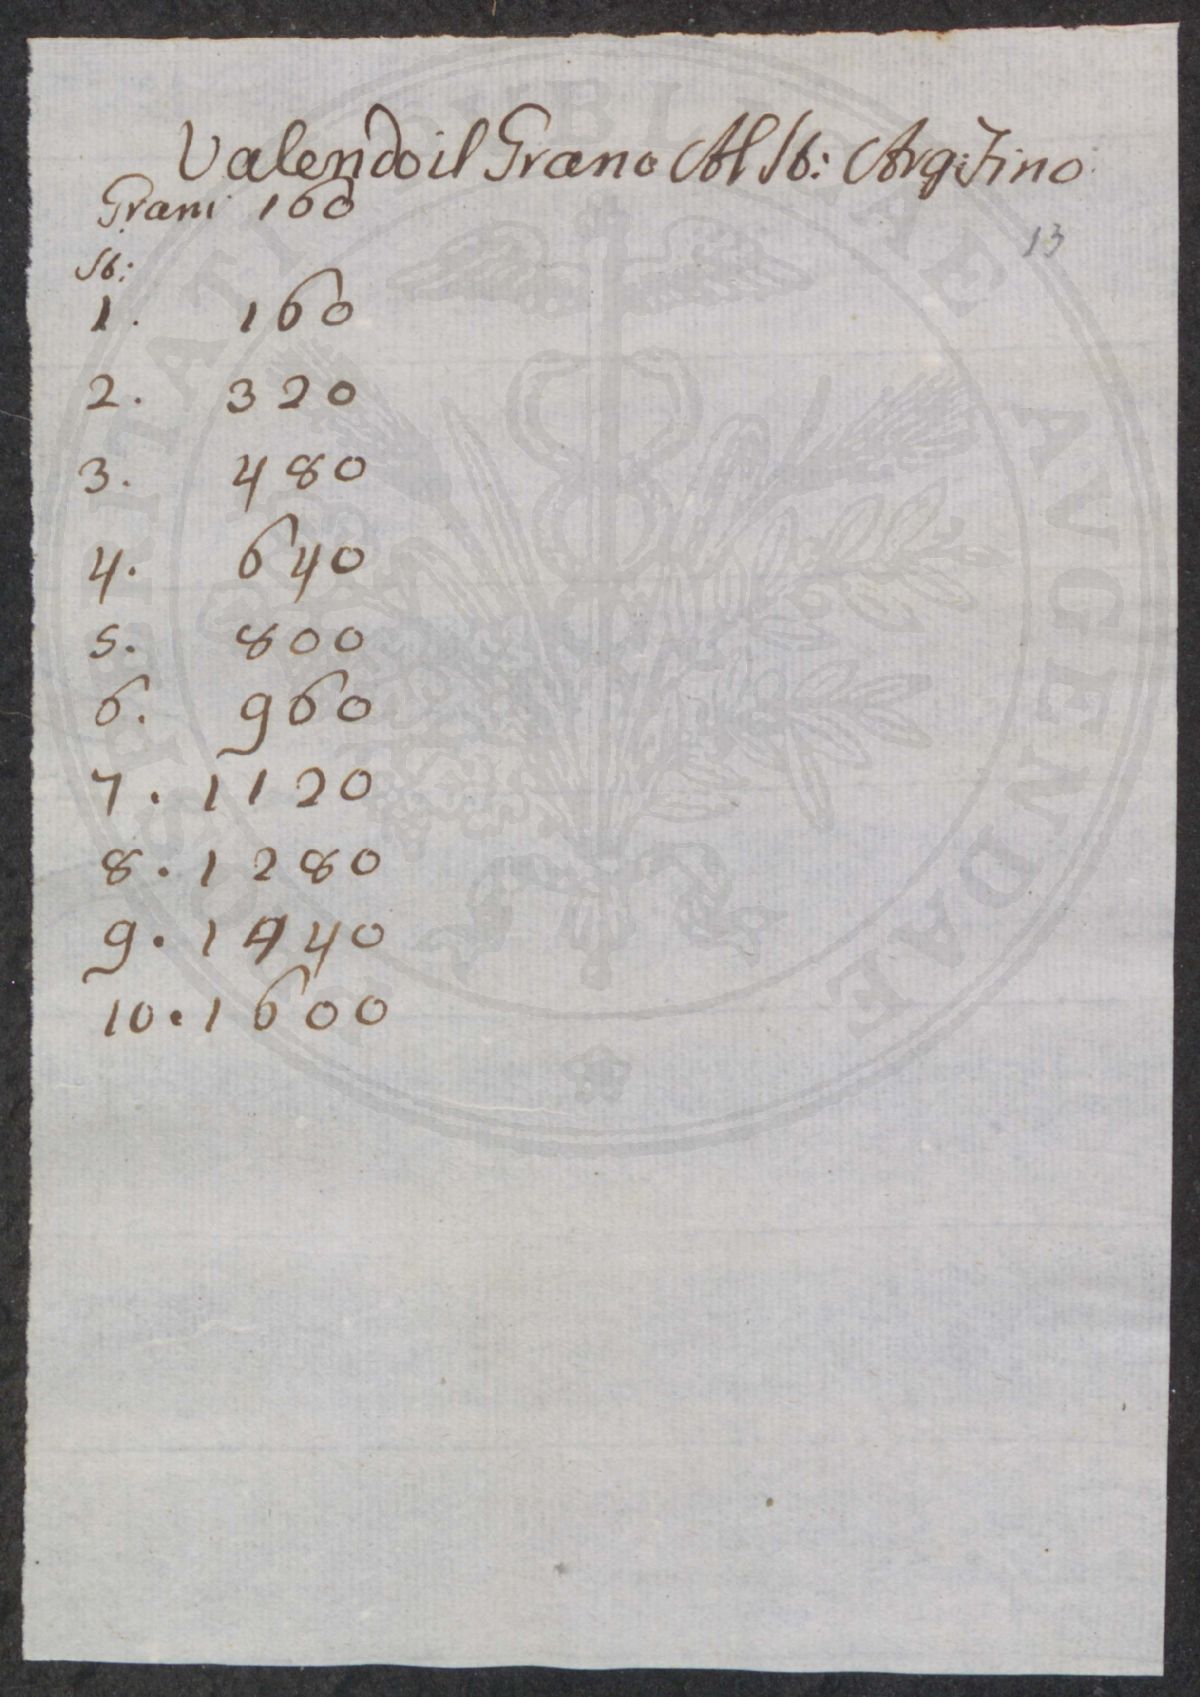 Valendo il Grano Al St: Arg: Fino
Grani 160
13
St:
1. 160
2. 320
3. 480
4. 640
5. 800
6. 960
7. 1120
8. 1280
9. 1440
10. 1600